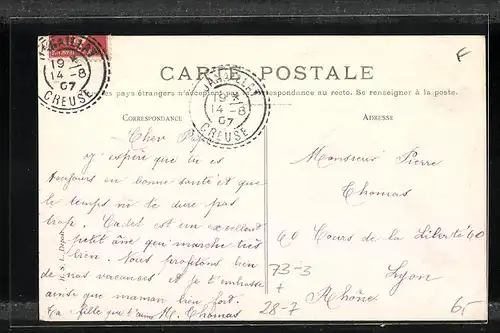 JARNAILLAT
19 *
14-8
07
CREUSE
CARTE POSTALE
19 *
14-8
07
CREUSE
les pays étrangers n'acceptent pas correspondance au recto. Se renseigner à la poste.
CORRESPONDANCE
Cher Papa
J'espère que tu es
toujours en bonne santé et que
le temps ne te dure pas
trop. Cadet est un excellent
petit âne qui marche très
bien. Nous profitons bien
de nos vacances et je t'embrasse
ainsi que maman bien fort.
Ta fille qui t'aime M. Thomas
ADRESSE
Monsieur Pierre
Thomas
60 Cours de la Liberté 60
Lyon
Rhône
F
73-3
+
28-7
6,-